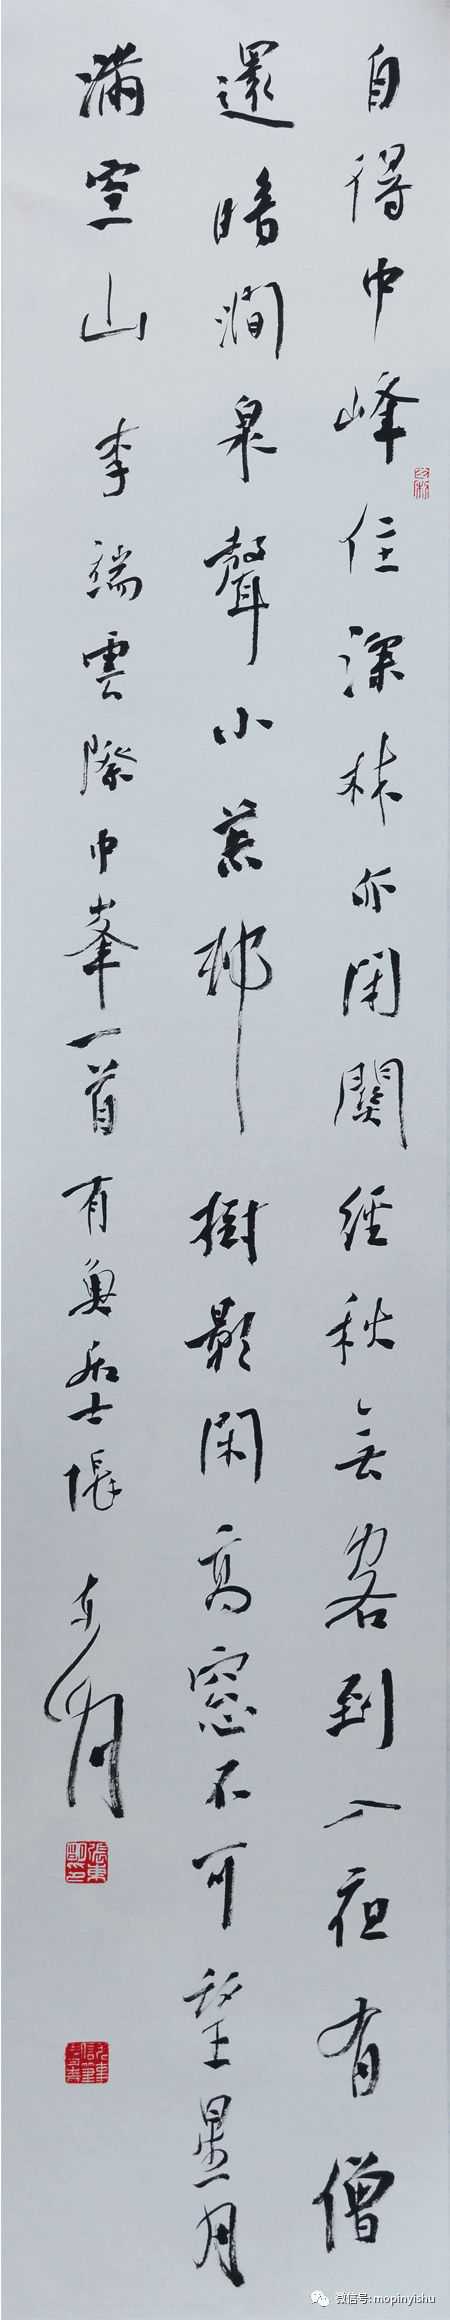 自得中峰住深林亦閉關經秋無客到入夜有僧
還暗澗泉聲小荒邨樹影閑高窓不可望星月
滿空山 李端雲際中峯一首 有魚居士張東明
張東明印
微信号: mopinyishu